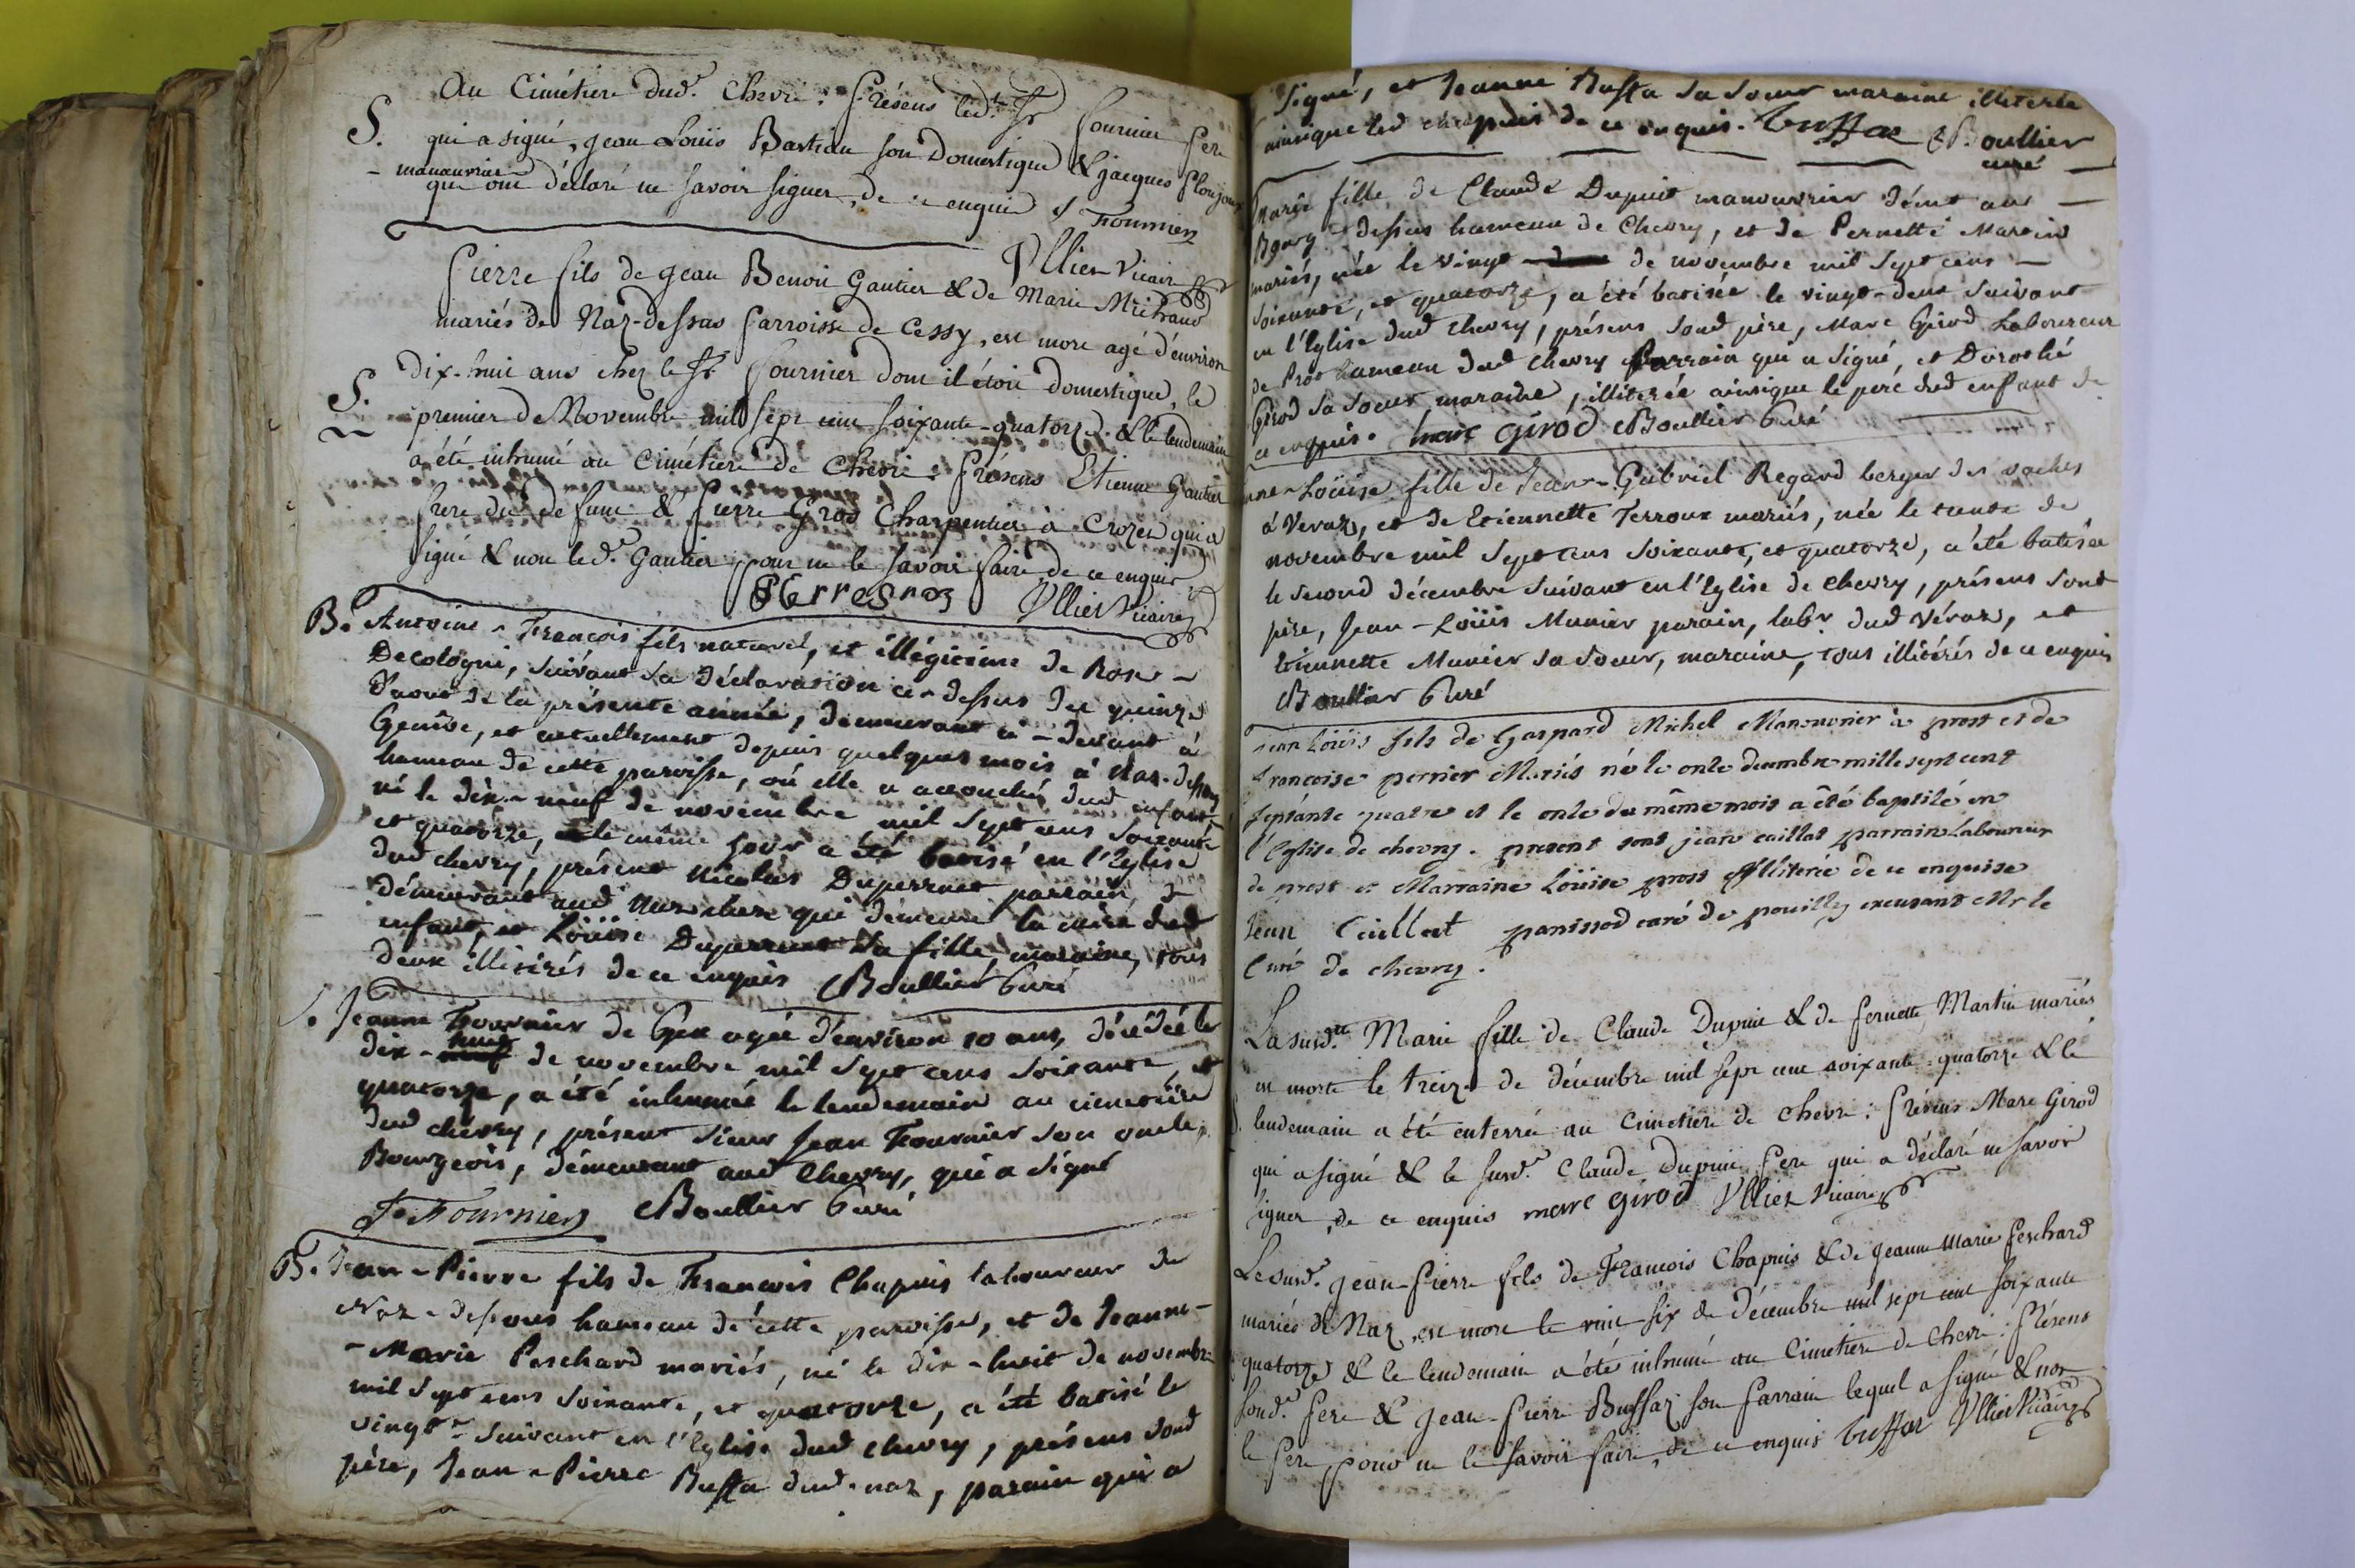 Au Cimétiere dud.t Chevri : Présens led.t Sr Fournier Pere
S. qui a signé, Jean Louïs Bastian son Domestique & Jacques
- manouvrier
qui ont déclaré ne savoir signer, de ce enquis J Fournier
Ulliet Vicaire
Pierre fils de Jean Benoit Gautier & de Marie Michaud
mariés de Naz-dessus Parroisse de Cessy, est mort agé d'environ
dix-huit ans chez le Sr Fournier dont il étoit domestique, le
S. premier de Novembre mil sept cent soixante-quatorze & le lendemain
a été inhumé au Cimétiere de Chevri : Présens Etienne Gautier
frere dud. defunt & Pierre Gros Charpentier à Crozet qui a
signé & non led.t Gautier pour ne le savoir faire de ce enquis
Pierre gros Ulliet Vicaire
B. Antoine-François fils naturel, et illégitime de Rose -
Decologni, suivant sa déclaration ci-dessus du quinze
d'aout de la présente année, demeurant ci-devant à
Genêve, et actuellement depuis quelques mois à Naz-dessous
hameau de cette paroisse, où elle a accouché dud enfant
né le dix-neuf de novembre mil sept cens soixante
et quatorze, le même jour a été batisé en l'Eglise
dud chevry, présens Nicolas Duperrut parrain,
démeurant aud Naz chez qui demeure la mère dud
enfant, et Loüise Duperrut sa fille, maraine, tous
deux illitérés de ce enquis Boullier Curé
S. Jeanne Fournier de Gex agée d'environ 10 ans, décédée le
dix-huit de novembre mil sept cens soixante, et
quatorze, a été inhumée le lendemain au cimetiére
dud chévry, présent sieur Jean Fournier son oncle,
Bourgeois, démeurant aud Chevry, qui a signé
J. Fournier Boullier Curé
B. Jean-Pierre fils de François Chapuis laboureur de
Naz-dessous hameau de cette paroisse, et de Jeanne-
-Marie Perchard mariés, né le dix-huit de novembre
mil sept cens soixante, et quatorze, a été batisé le
vingt suivant en l'Eglise dud chevry, présens soud
père, Jean-Pierre Buffa dud. naz, parain qui a
signé, et Jeanne Buffa sa soeur maraine illiterée
ainsique led chapuis de ce enquis. buffaz Boullier
curé
Marie fille de Claude Dupuit manouvrier démt au -
Bourg-dessus hameau de Chevry, et de Pernette Martin
mariés, née le vingt de novembre mil sept cens -
soixante, et quatorze, a été batisée le vingt-deux suivant
en l'Eglise dud chevry, présens soud père, Marc Girod Laboureur
de Prost hameau dud chevry Parrain qui a signé, et Dorothé
Girod sa soeur maraine, illiterée ainsique le pere dud enfant de
ce enquis. marc girod Boullier Curé
Loüise fille de Jean-Gabriel Regard berger des vaches
à Veraz, et de Etiennette Terroux mariés, née le trente de
novembre mil sept cens soixante, et quatorze, a été batisée
le second décembre suivant en l'Eglise de chevry, présens soud
père, Jean-Loüis Munier parain, labr. dud Véraz, et
Etiennette Munier sa soeur, maraine, tous illitérés de ce enquis
Boullier Curé
jean Loüis fils de Gaspard Michel Manouvrier à prost et de
francoise perrier Mariés né le onze decembre mille sept cent
septante quatre et le onze du même mois a été baptisé en
l'Eglise de chevry. present sont jean caillat parrain Laboureur
de prost et Marraine Loüise pross illiterée de ce enquise
Jean Caillat panissod curé de pouilly excusant Mr le
Curé de chevry.
La susd.tte Marie fille de Claude Dupuit & de Pernette Martin mariés
est morte le treize de décembre mil sept cent soixante quatorze & le
lendemain a été enterrée au Cimetiere de Chevri : Présens Marc Girod
qui a signé & le susd.t Claude Dupuit Pere qui a déclaré ne savoir
signer, de ce enquis marc girod Ulliet Vicaire
Le susd.t Jean-Pierre fils de François Chapuis & de Jeanne Marie Perchard
mariés de Naz, est mort le vint six de décembre mil sept cent soixante
quatorze & le lendemain a été inhumé au Cimetiere de Chevri : Présens
soud.t Pere & Jean-Pierre Buffaz son Parrain lequel a signé & non
le Pere pour ne le savoir faire, de ce enquis buffaz Ulliet Vicaire